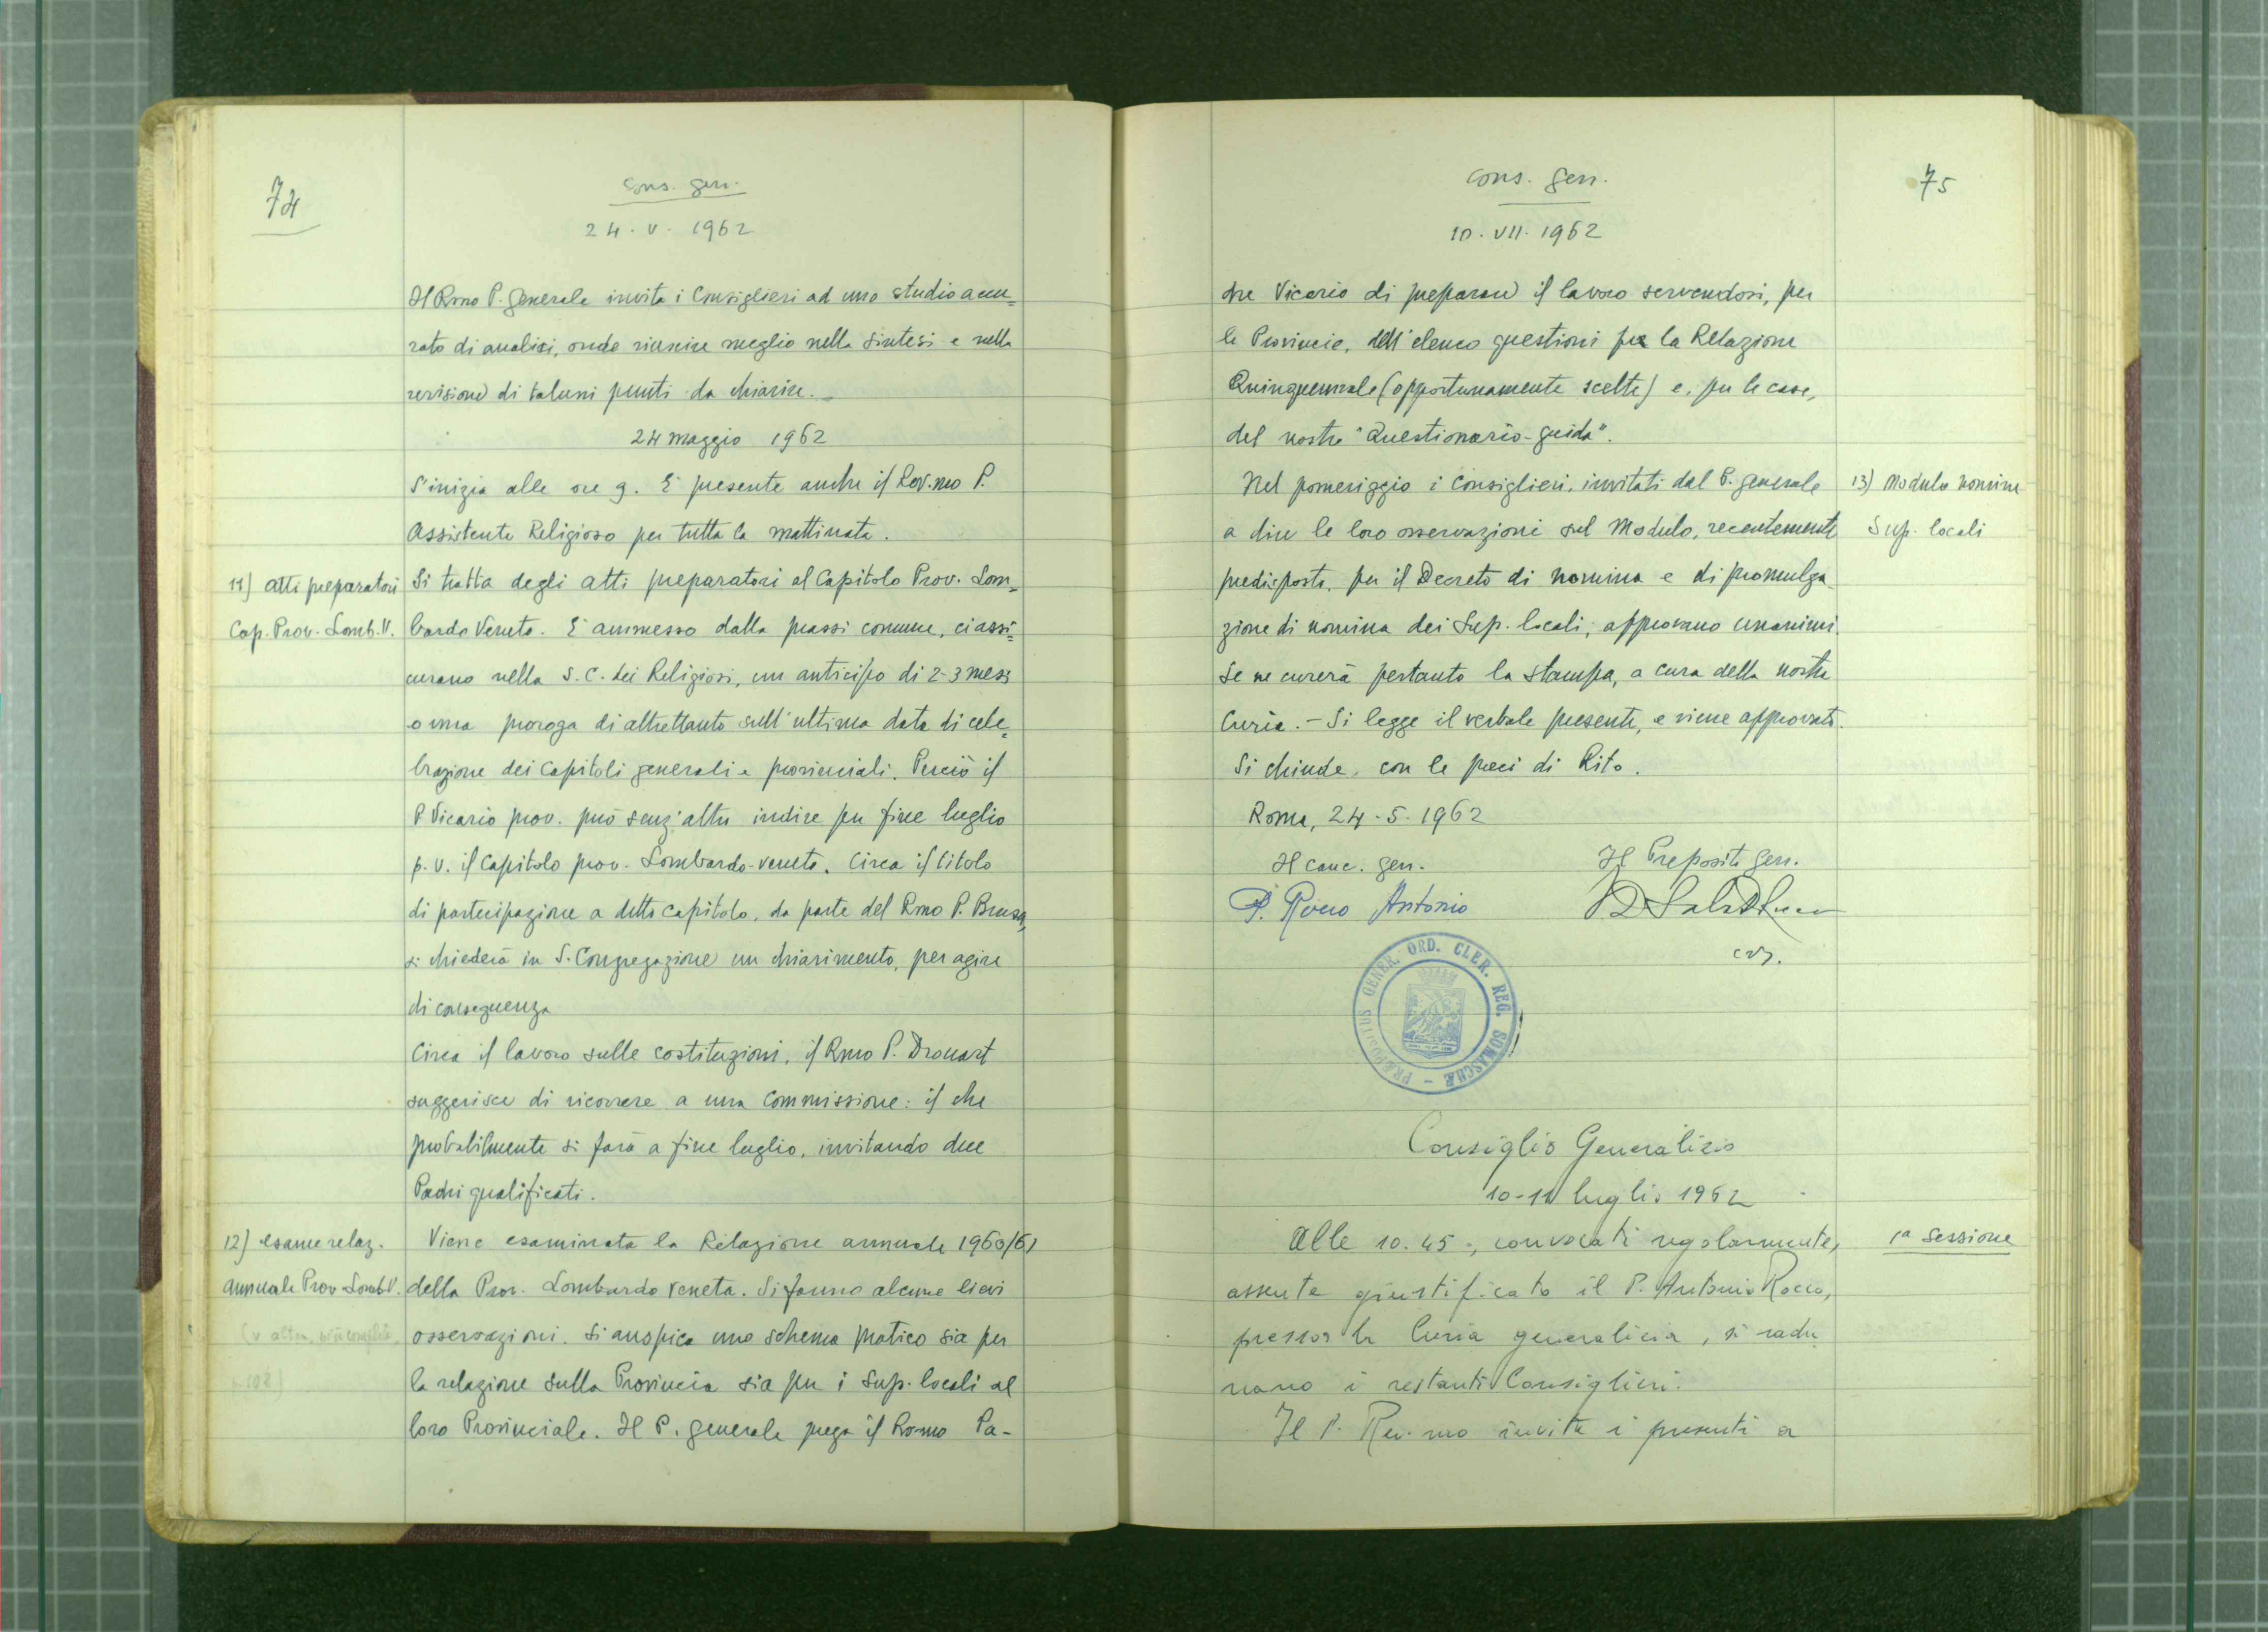 74
Cons. gen.
24. V. 1962
Il Rmo P. generale invita i Consiglieri ad uno studio accu=
rato di analisi, onde riuscire meglio nella sintesi e nella
revisione di taluni punti da chiarire.
24 maggio 1962
S'inizia alle ore 9. È presente anche il Rev.mo P.
Assistente Religioso per tutta la mattinata.
11) atti preparatori
Cap. Prov. Lomb. V.
Si tratta degli atti preparatori al Capitolo Prov. Lom=
bardo Veneto. È ammesso dalla prassi comune, ci assi=
curano nella S. C. dei Religiosi, un anticipo di 2-3 mesi
o una proroga di altrettanto sull'ultima data di cele=
brazione dei Capitoli generali e provinciali. Perciò il
P. Vicario prov. può senz'altro indire per fine luglio
p. v. il Capitolo prov. Lombardo-veneto. Circa il titolo
di partecipazione a detto capitolo, da parte del Rmo P. Brusa,
si chiederà in S. Congregazione un chiarimento, per agire
di conseguenza
Circa il lavoro sulle costituzioni, il Rmo P. Drouart
suggerisce di ricorrere a una Commissione: il che
probabilmente si farà a fine luglio, invitando due
Padri qualificati.
12) esame relaz.
annuale Prov Lomb. V.
Viene esaminata la Relazione annuale 1960/61
della Prov. Lombardo Veneta. Si fanno alcune lievi
osservazioni. Si auspica uno schema pratico sia per
la relazione sulla Provincia sia per i Sup. locali al
loro Provinciale. Il P. generale prega il Rev.mo Pa-
75
Cons. Gen.
10. VII. 1962
dre Vicario di preparare il lavoro servendosi, per
le Provincie, dell'elenco questioni per la Relazione
Quinquennale (opportunamente scelte) e, per le case,
del nostro "Questionario-guida".
13) Modulo nomine
Sup. locali
Nel pomeriggio i Consiglieri, invitati dal P. generale
a dire le loro osservazioni sul Modulo, recentemente
predisposto, per il Decreto di nomina e di promulga
zione di nomina dei Sup. locali, approvano unanimi.
Se ne curerà pertanto la stampa, a cura della nostra
Curia. - Si legge il verbale presente, e viene approvato.
Si chiude, con le preci di Rito.
Roma, 24-5-1962
Il canc. gen.
Il Preposito Gen.
P. Rocco Antonio
crs.
PRÆPOSITUS GENER. ORD. CLER. REG. SOMASCHÆ
Consiglio Generalizio
10-11 luglio 1962
1ª Sessione
Alle 10.45, convocati regolarmente,
assente giustificato il P. Antonio Rocco,
presso la Curia generalizia, si radu
nano i restanti Consiglieri.
Il P. Rev.mo invita i presenti a